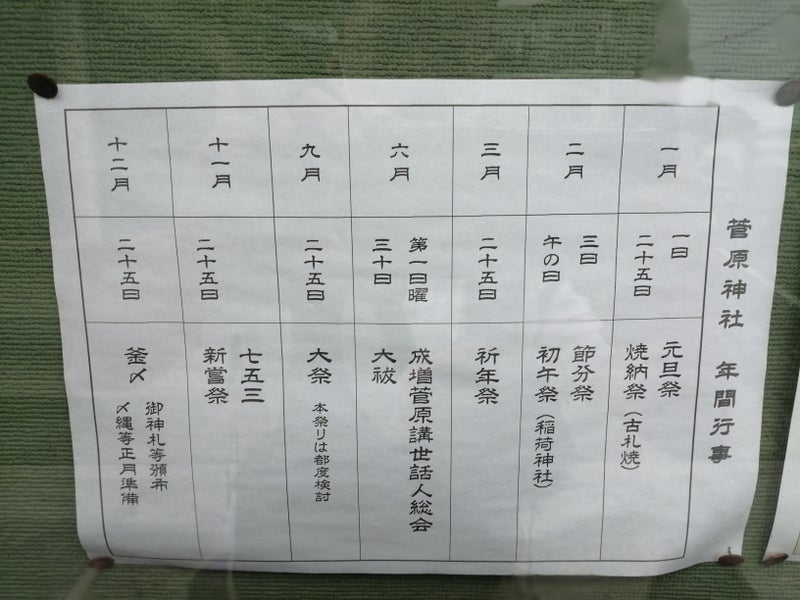 菅原神社 年間行事
一月
一日
二十五日
元旦祭
焼納祭(古札焼)
二月
三日
午の日
節分祭
初午祭(稲荷神社)
三月
二十五日
祈年祭
六月
第一日曜
三十日
成増菅原講世話人総会
大祓
九月
二十五日
大祭 本祭りは都度検討
十一月
二十五日
七五三
新嘗祭
十二月
二十五日
釜〆
御神札等頒布
〆縄等正月準備